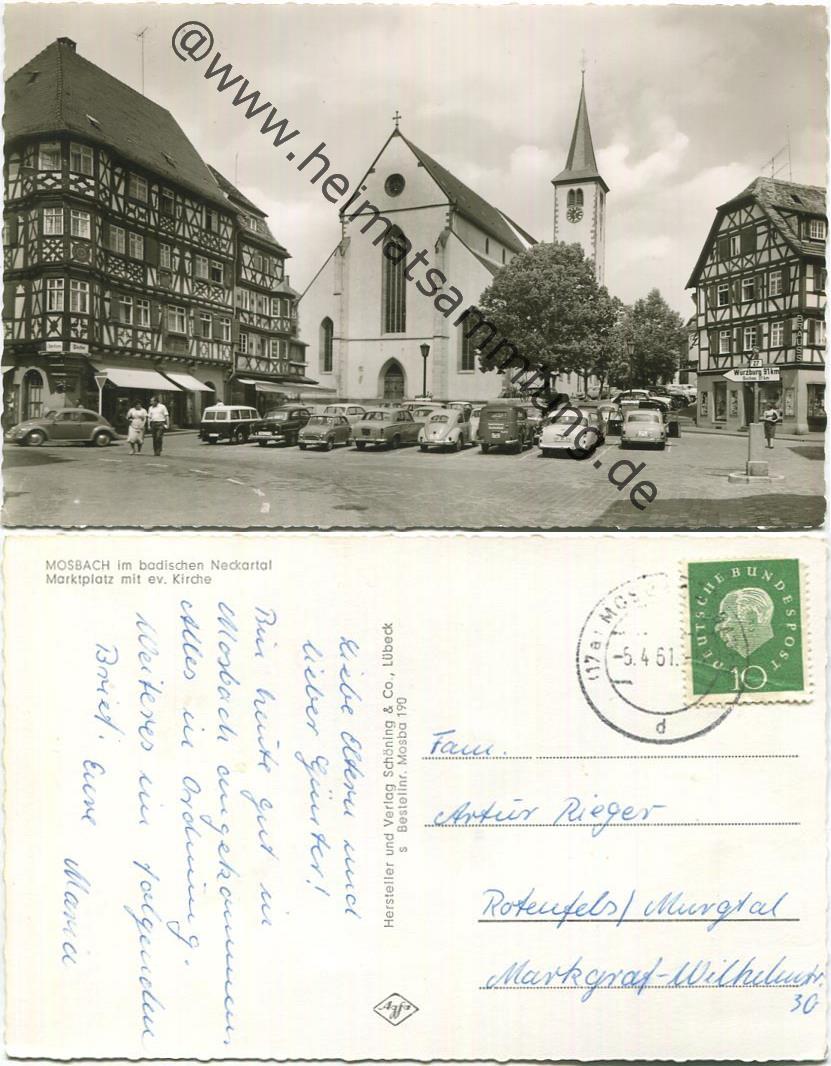 @www.heimatsammlung.de
Würzburg 91 km
MOSBACH im badischen Neckartal
Marktplatz mit ev. Kirche
Liebe Eltern und
lieber Günter!
Bin heute gut in
Mosbach angekommen.
Alles in Ordnung.
Weiteres im folgenden
Brief. Eure Maria
Hersteller und Verlag Schöning & Co., Lübeck
s Bestellnr. Mosba 190
Agfa
(17a) MOSB
-5.4.61.
d
DEUTSCHE BUNDESPOST
10
Fam.
Artur Rieger
Rotenfels/Murgtal
Markgraf-Wilhelmstr.
30